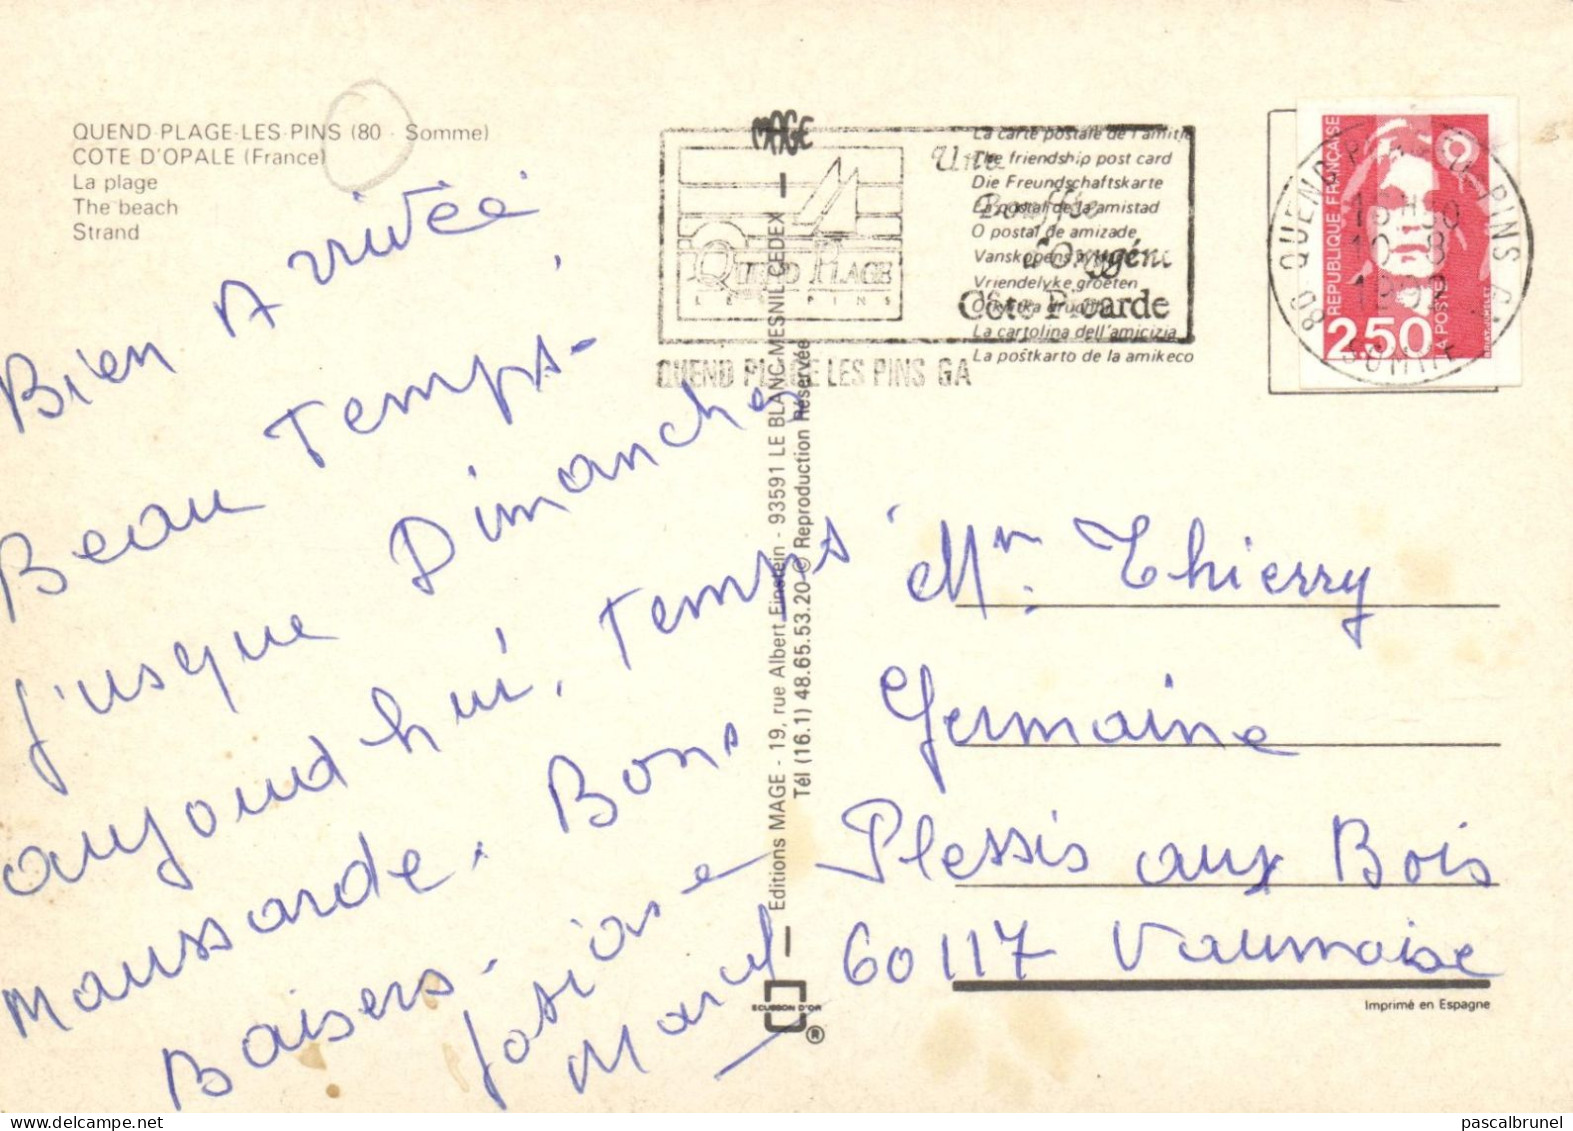 QUEND-PLAGE-LES-PINS (80 - Somme)
COTE D'OPALE (France)
La plage
The beach
Strand
Bien Arrivée
Beau Temps.
j'usque Dimanche
aujound hui, Temps
Maussarde. Bons
Baisers.
Josiane
Marcel
MAGE
Editions MAGE - 19, rue Albert Einstein - 93591 LE BLANC-MESNIL CEDEX
Tél (16.1) 48.65.53.20 © Reproduction Réservée
ECUSSON D'OR
®
La carte postale de l'amitié
The friendship post card
Die Freundschaftskarte
La postal de la amistad
O postal de amizade
Vriendelyke groeten
La cartolina dell'amicizia
La poŝtkarto de la amikeco
QUEND PLAGE
LES PINS
Une
Bouffée
d'Oxygène
Côte Picarde
QUEND PLAGE LES PINS GA
80 QUEND PLAGE LES PINS GA
SOMME
REPUBLIQUE FRANÇAISE
2,50
LA POSTE
Mr. Thierry
Germaine
Plessis aux Bois
60117 Vaumoise
Imprimé en Espagne
pascalbrunel